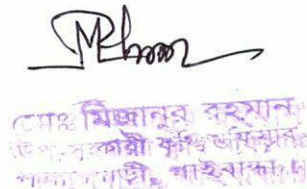 মোঃ মিজানুর রহমান
উপ-সহকারী কৃষি অফিসার
গাইবান্ধা।